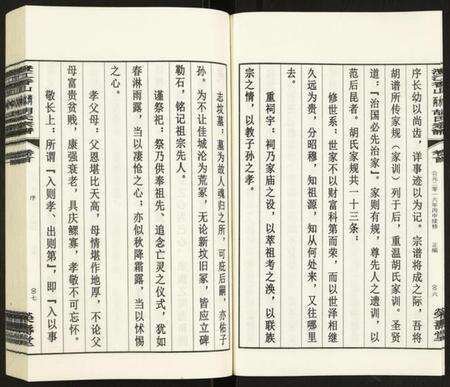 序长幼以尚齿，详事迹以为记。宗谱将成之际，吾将
胡谱所传家规（家训）列于后，重温胡氏家训。圣贤
道：『治国必先治家』。家则有规，尊先人之遗训，以
范后昆者。胡氏家规共一十三条：
修世系：世家不以财富科第而荣，而以世泽相继
久远为贵，分昭穆，知祖源，知从何处来，又往哪里
去。
重祠宇：祠乃家庙之设，以萃祖考之涣，以联族
宗之情，以教子孙之孝。
卷首
正编
六
荣寿堂
志坟墓：墓为故人魂归之所，可庇后嗣，亦佑子
孙。为不让佳城沦为荒冢，无论新坟旧冢，皆应立碑
勒石，铭记祖宗先人。
谨祭祀：祭乃供奉祖先、追念亡灵之仪式，犹如
春淋雨露，当以凄怆之心；亦似秋降霜露，当以怵惕
之心。
孝父母：父恩堪比天高，母情堪作地厚，不论父
母富贵贫贱，康强衰老，具庆鳏寡，孝敬不可忘怀。
敬长上：所谓『入则孝、出则第』，即『入以事
卷首
序
七
荣寿堂